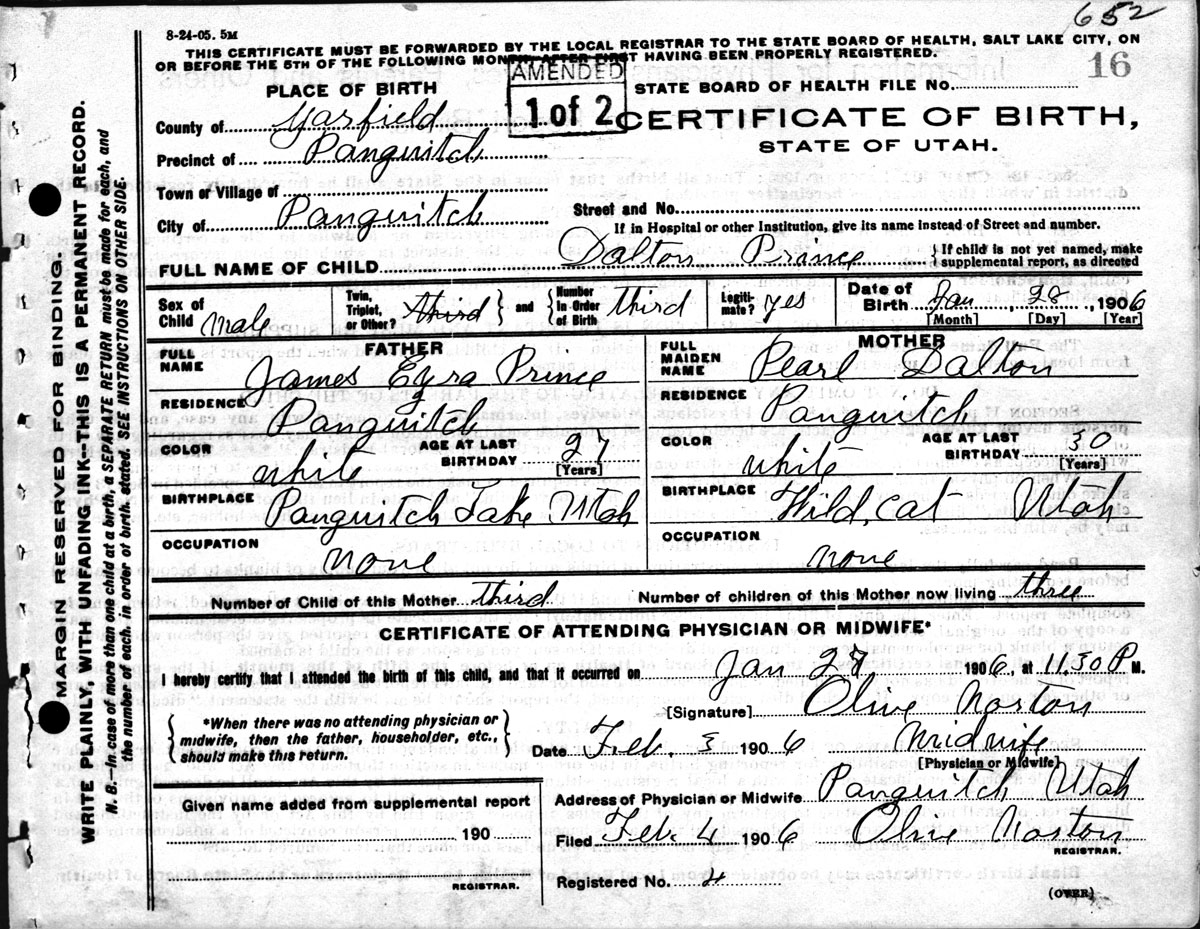 652
8-24-05. 5M
THIS CERTIFICATE MUST BE FORWARDED BY THE LOCAL REGISTRAR TO THE STATE BOARD OF HEALTH, SALT LAKE CITY, ON
OR BEFORE THE 5TH OF THE FOLLOWING MONTH, AFTER FIRST HAVING BEEN PROPERLY REGISTERED.
16
AMENDED
1 of 2
PLACE OF BIRTH
STATE BOARD OF HEALTH FILE No.
County of Garfield
CERTIFICATE OF BIRTH,
STATE OF UTAH.
Precinct of Panguitch
Town or Village of
Street and No.
City of Panguitch
If in Hospital or other Institution, give its name instead of Street and number.
FULL NAME OF CHILD Dalton Prince {If child is not yet named, make supplemental report, as directed
Sex of Child Male
Twin, Triplet, or Other? third } and { Number in Order of Birth third
Legiti- mate? yes
Date of Birth Jan 28, 1906
[Month] [Day] [Year]
FATHER
FULL NAME James Ezra Prince
RESIDENCE Panguitch
COLOR white AGE AT LAST BIRTHDAY 27
[Years]
BIRTHPLACE Panguitch Lake Utah
OCCUPATION none
MOTHER
FULL MAIDEN NAME Pearl Dalton
RESIDENCE Panguitch
COLOR white AGE AT LAST BIRTHDAY 30
[Years]
BIRTHPLACE Wild, Cat Utah
OCCUPATION none
Number of Child of this Mother third Number of children of this Mother now living three
CERTIFICATE OF ATTENDING PHYSICIAN OR MIDWIFE*
I hereby certify that I attended the birth of this child, and that it occurred on Jan 27 1906, at 11.30 P M.
[Signature] Olive Norton
{*When there was no attending physician or midwife, then the father, householder, etc., should make this return.}
Date Feb. 3 1906 Midwife
[Physician or Midwife]
Given name added from supplemental report
190
REGISTRAR.
Address of Physician or Midwife Panguitch Utah
Filed Feb 4 1906 Olive Norton
REGISTRAR.
Registered No. 4
(OVER)
MARGIN RESERVED FOR BINDING.
WRITE PLAINLY, WITH UNFADING INK--THIS IS A PERMANENT RECORD.
N. B.--In case of more than one child at a birth, a SEPARATE RETURN must be made for each, and
the number of each, in order of birth, stated. SEE INSTRUCTIONS ON OTHER SIDE.